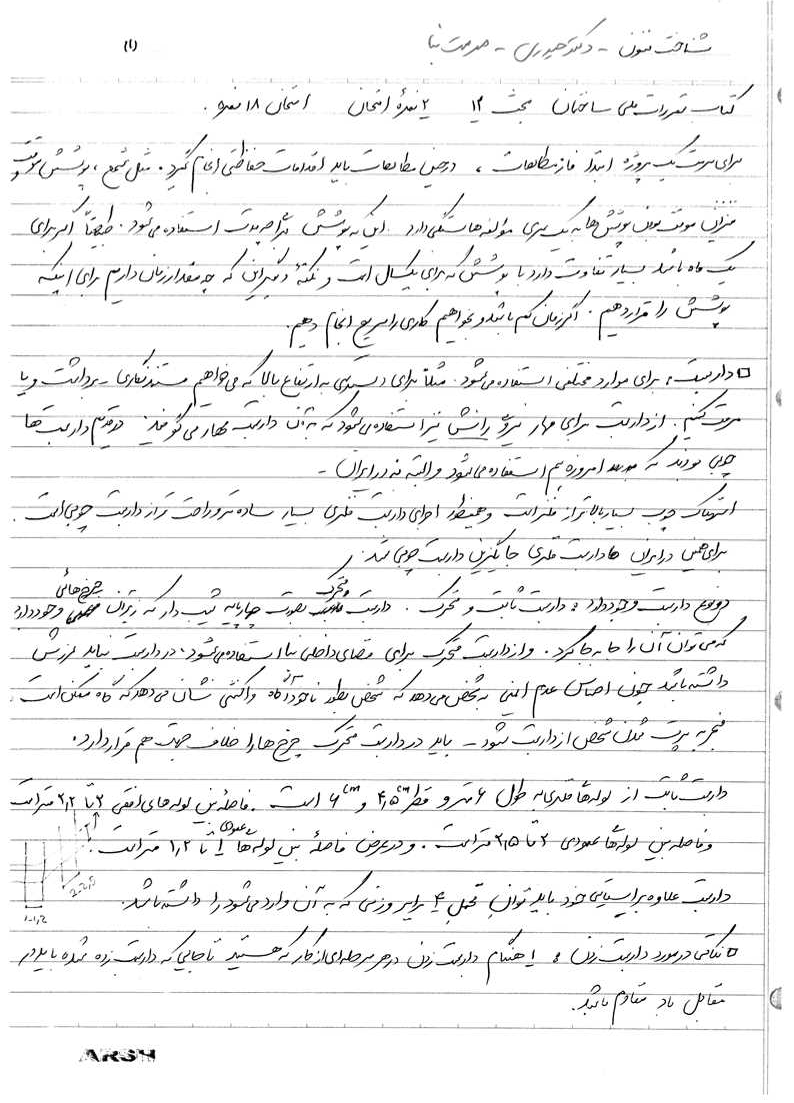 (۱)
شناخت فنون - دکتر حیدری - مرمت بنا
کتاب مقررات ملی ساختمان مبحث ۱۲ ۲ نمره امتحان امتحان ۱۸ نمره.
برای مرمت یک پروژه ابتدا فاز مطالعات، در حین مطالعات باید اقدامات حفاظتی انجام گیرد. مثل شمع، پوشش موقت و
میزان موقت بودن پوشش‌ها به یک سری مؤلفه‌ها بستگی دارد این که پوشش برای چه مدت استفاده می‌شود. طبیعتاً اگر برای
یک ماه باشد بسیار تفاوت دارد با پوششی که برای یکسال است و نکتهٔ دیگر این که چه مقدار زمان داریم برای اینکه
پوشش را قرار دهیم. اگر زمان کم باشد و بخواهیم کاری را سریع انجام دهیم.
داربست: برای موارد مختلفی استفاده می‌شود. مثلاً برای دسترسی به ارتفاع بالا که می‌خواهیم مستندنگاری - برداشت و یا
مرمت کنیم. از داربست برای مهار نیروی رانش نیز استفاده می‌شود که به آن داربست مهار می‌گویند. در قدیم داربست‌ها
چوبی بودند که امروزه هم استفاده می‌شود و البته نه در ایران -
استهلاک چوب بسیار بالاتر از فلز است و همینطور اجرای داربست فلزی بسیار ساده‌تر و راحت‌تر از داربست چوبی است.
برای همین در ایران داربست فلزی جایگزین داربست چوبی شد.
دو نوع داربست وجود دارد: داربست ثابت و متحرک. داربست متحرک بصورت چهارپایه شیب‌دار که زیر آن چرخ‌هایی وجود دارد
که می‌توان آن را جا به جا کرد. و از داربست متحرک برای فضای داخلی بنا استفاده می‌شود. در داربست نباید لرزش
داشته باشد چون احساس عدم ایمنی به شخص می‌دهد که شخص بطور ناخودآگاه واکنشی نشان می‌دهد که گاه ممکن است
منجر به پرت شدن شخص از داربست شود - باید در داربست متحرک چرخ‌ها را خلاف جهت هم قرار داد.
داربست ثابت از لوله‌های فلزی به طول ۶ متر و قطر ۴,۵cm و ۶cm است. فاصله بین لوله‌های افقی ۲ تا ۲,۲ متر است
و فاصله بین لوله‌های عمودی ۲ تا ۲,۵ متر است. و در عرض فاصلهٔ بین لوله‌ها عمودی ۱ تا ۱,۲ متر است.
2-2,5
1-1,2
داربست علاوه بر ایستایی خود باید توان تحمل ۴ برابر وزنی که به آن وارد می‌شود را داشته باشد.
نکاتی در مورد داربست زدن: ۱ هنگام داربست زدن در هر مرحله‌ای از کار که هستید تا جایی که داربست زده شده باید در
مقابل باد مقاوم باشد.
ARSH